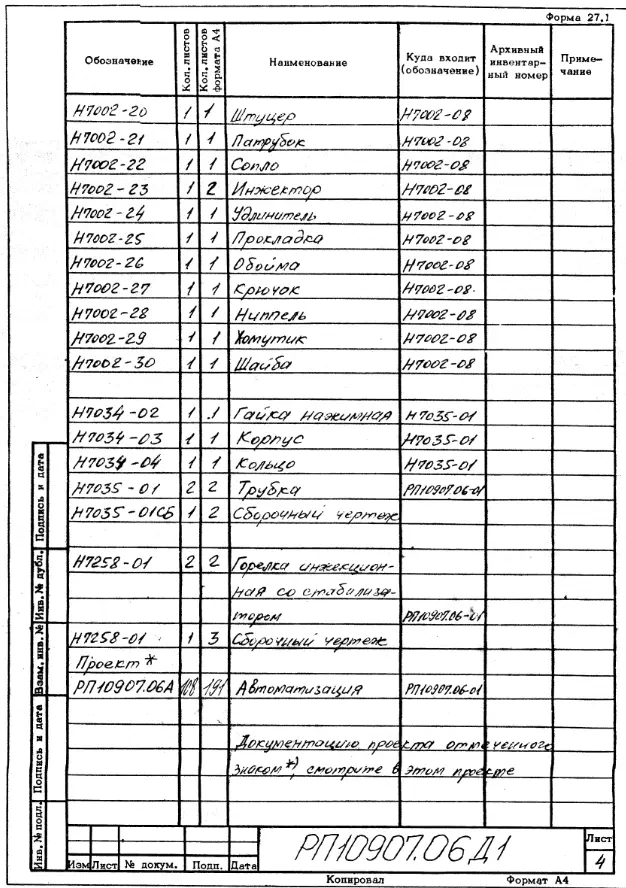 Форма 27.1
Обозначение Кол. листов Кол. листов формата А4 Наименование Куда входит (обозначение) Архивный инвентар-ный номер Приме-чание
Н7002-20 1 1 Штуцер Н7002-08
Н7002-21 1 1 Патрубок Н7002-08
Н7002-22 1 1 Сопло Н7002-08
Н7002-23 1 2 Инжектор Н7002-08
Н7002-24 1 1 Удлинитель Н7002-08
Н7002-25 1 1 Прокладка Н7002-08
Н7002-26 1 1 Обойма Н7002-08
Н7002-27 1 1 Крючок Н7002-08
Н7002-28 1 1 Ниппель Н7002-08
Н7002-29 1 1 Хомутик Н7002-08
Н7002-30 1 1 Шайба Н7002-08
Н7034-02 1 1 Гайка нажимная Н7035-01
Н7034-03 1 1 Корпус Н7035-01
Н7034-04 1 1 Кольцо Н7035-01
Н7035-01 2 2 Трубка РП10907.06-01
Н7035-01СБ 1 2 Сборочный чертеж
Н7258-01 2 2 Горелка инжекцион-
ная со стабилиза-
тором РП10907.06-01
Н7258-01 1 3 Сборочный чертеж
Проект *
РП10907.06А 108 191 Автоматизация РП10907.06-01
Документацию проекта отмеченного
знаком *) смотрите в этом проекте
Инв. № подл. Подпись и дата Взам. инв. № Инв. № дубл. Подпись и дата
РП10907.06Д1
Лист
4
Изм Лист № докум. Подп. Дата
Копировал Формат А4